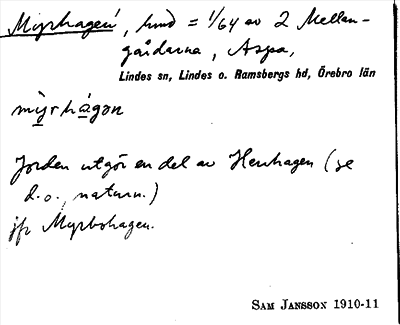 Myrhagen, hmd = 1/64 av 2 Mellan-
gårdarna, Aspa,
Lindes sn, Lindes o. Ramsbergs hd, Örebro län
mỳrhágan
Jorden utgör en del av Hemhagen (se
d.o., naturn.)
jfr Myrbohagen.
SAM JANSSON 1910-11